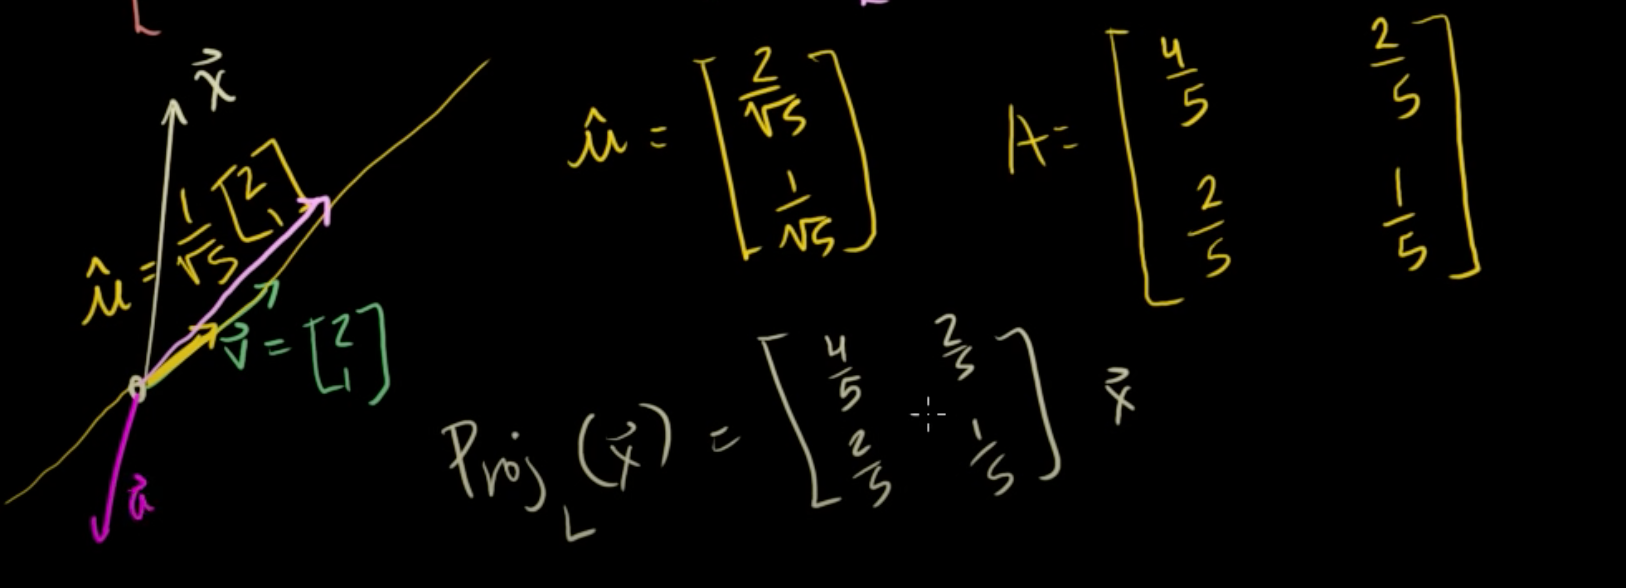 x⃗
û = 1/√5 [2 1]
v⃗ = [2 1]
a⃗
û = [2/√5 1/√5]
A = [4/5 2/5
2/5 1/5]
Proj_L (x⃗) = [4/5 2/5
2/5 1/5] x⃗